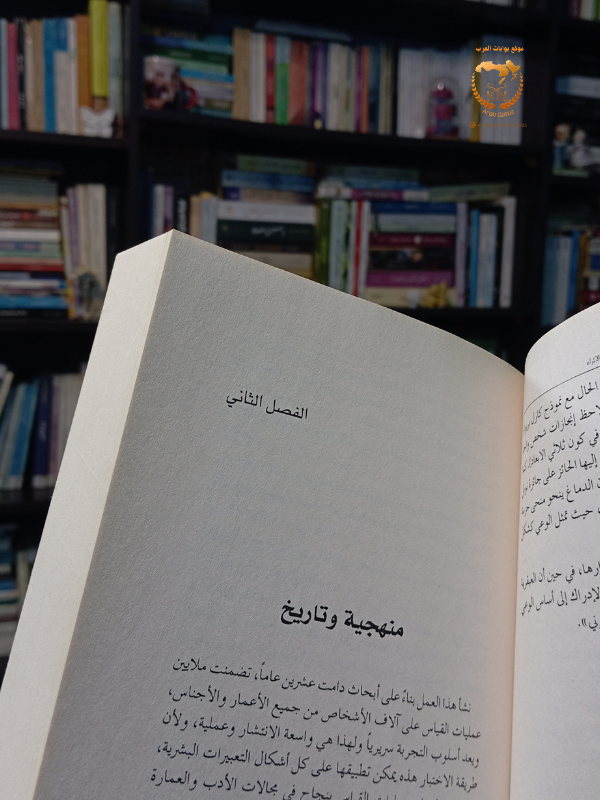 موقع بوابات العرب
Arab Gates
الفصل الثاني
منهجية وتاريخ
نشأ هذا العمل بناءً على أبحاث دامت عشرين عاماً، تضمنت ملايين
عمليات القياس على آلاف الأشخاص من جميع الأعمار والأجناس،
ويعد أسلوب التجربة سريرياً ولهذا هي واسعة الانتشار وعملية، ولأن
طريقة الاختبار هذه يمكن تطبيقها على كل أشكال التعبيرات البشرية،
القياس بنجاح في مجالات الأدب والعمارة
الحال مع نموذج كارل
إنجازات شخص
في كون ثلاثي الأبعاد
إليها الحائز على جائزة
الدماغ ينحو منحى
حيث تمثل الوعي كشكل
في حين أن العبقرية
الإدراك إلى أساس الوعي